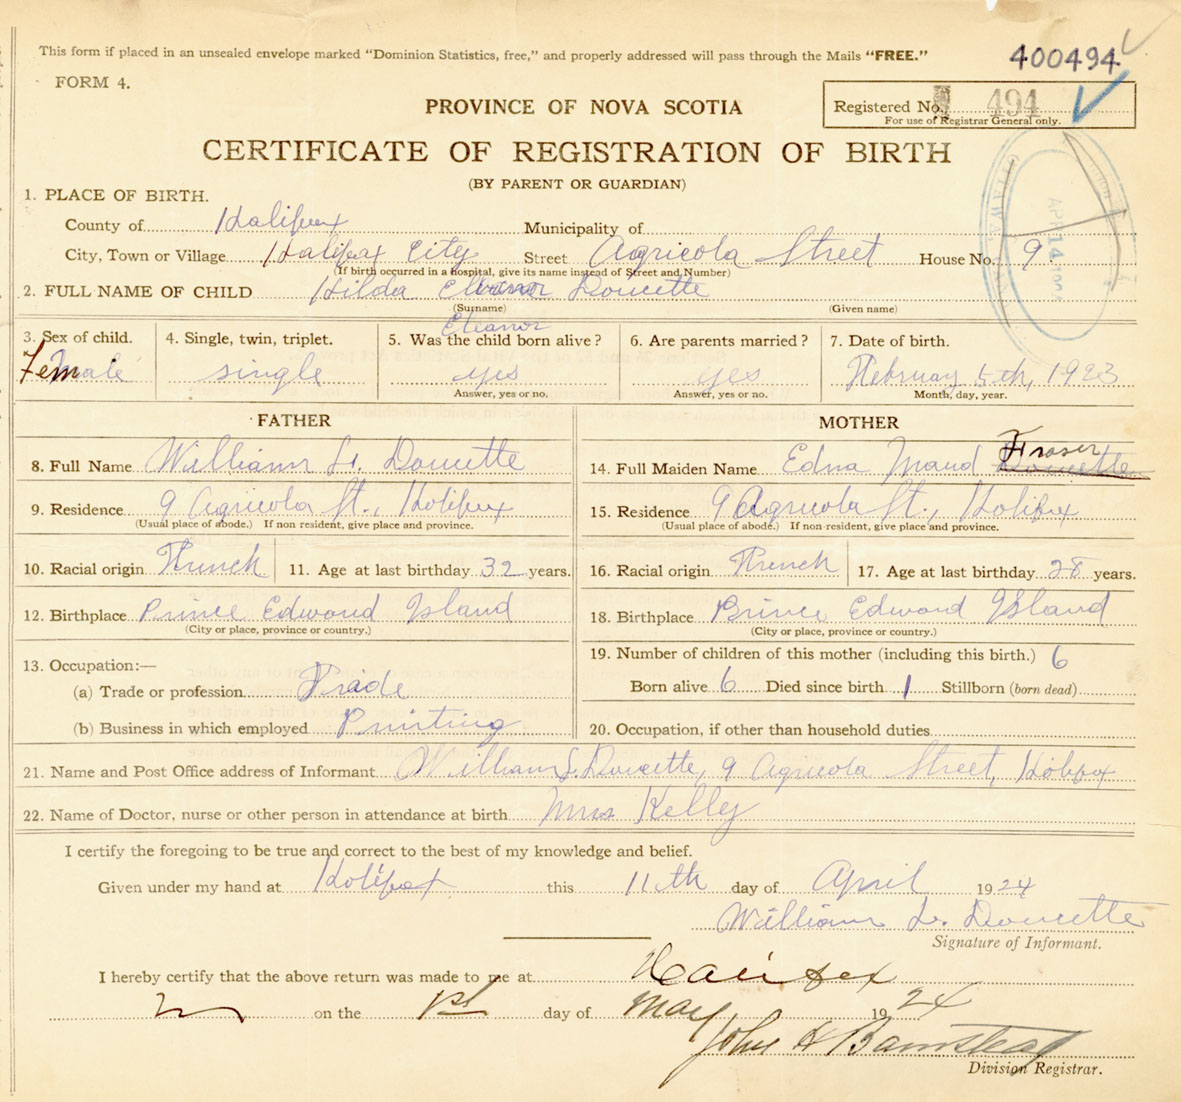 This form if placed in an unsealed envelope marked "Dominion Statistics, free," and properly addressed will pass through the Mails "FREE."
400494
FORM 4.
PROVINCE OF NOVA SCOTIA
Registered No. 494
For use of Registrar General only.
CERTIFICATE OF REGISTRATION OF BIRTH
(BY PARENT OR GUARDIAN)
1. PLACE OF BIRTH.
County of Halifax Municipality of
City, Town or Village Halifax City Street Agricola Street House No. 9
(If birth occurred in a hospital, give its name instead of Street and Number)
2. FULL NAME OF CHILD Hilda Eleanor Doucette
(Surname) (Given name)
Eleanor
3. Sex of child. 4. Single, twin, triplet. 5. Was the child born alive? 6. Are parents married? 7. Date of birth.
Female single yes yes February 5th, 1923
Answer, yes or no. Answer, yes or no. Month, day, year.
FATHER MOTHER
8. Full Name William L. Doucette 14. Full Maiden Name Edna Maud Doucette Fraser
9. Residence 9 Agricola St., Halifax 15. Residence 9 Agricola St., Halifax
(Usual place of abode.) If non resident, give place and province. (Usual place of abode.) If non-resident, give place and province.
10. Racial origin French 11. Age at last birthday 32 years. 16. Racial origin French 17. Age at last birthday 28 years.
12. Birthplace Prince Edward Island 18. Birthplace Prince Edward Island
(City or place, province or country.) (City or place, province or country.)
13. Occupation:— 19. Number of children of this mother (including this birth.) 6
(a) Trade or profession Trade Born alive 6 Died since birth 1 Stillborn (born dead)
(b) Business in which employed Printing 20. Occupation, if other than household duties
21. Name and Post Office address of Informant William L. Doucette, 9 Agricola Street, Halifax
22. Name of Doctor, nurse or other person in attendance at birth Mrs Kelly
I certify the foregoing to be true and correct to the best of my knowledge and belief.
Given under my hand at Halifax this 11th day of April 1924
William L. Doucette
Signature of Informant.
I hereby certify that the above return was made to me at Halifax
on the 1st day of May 1924
John H Barnstead
Division Registrar.